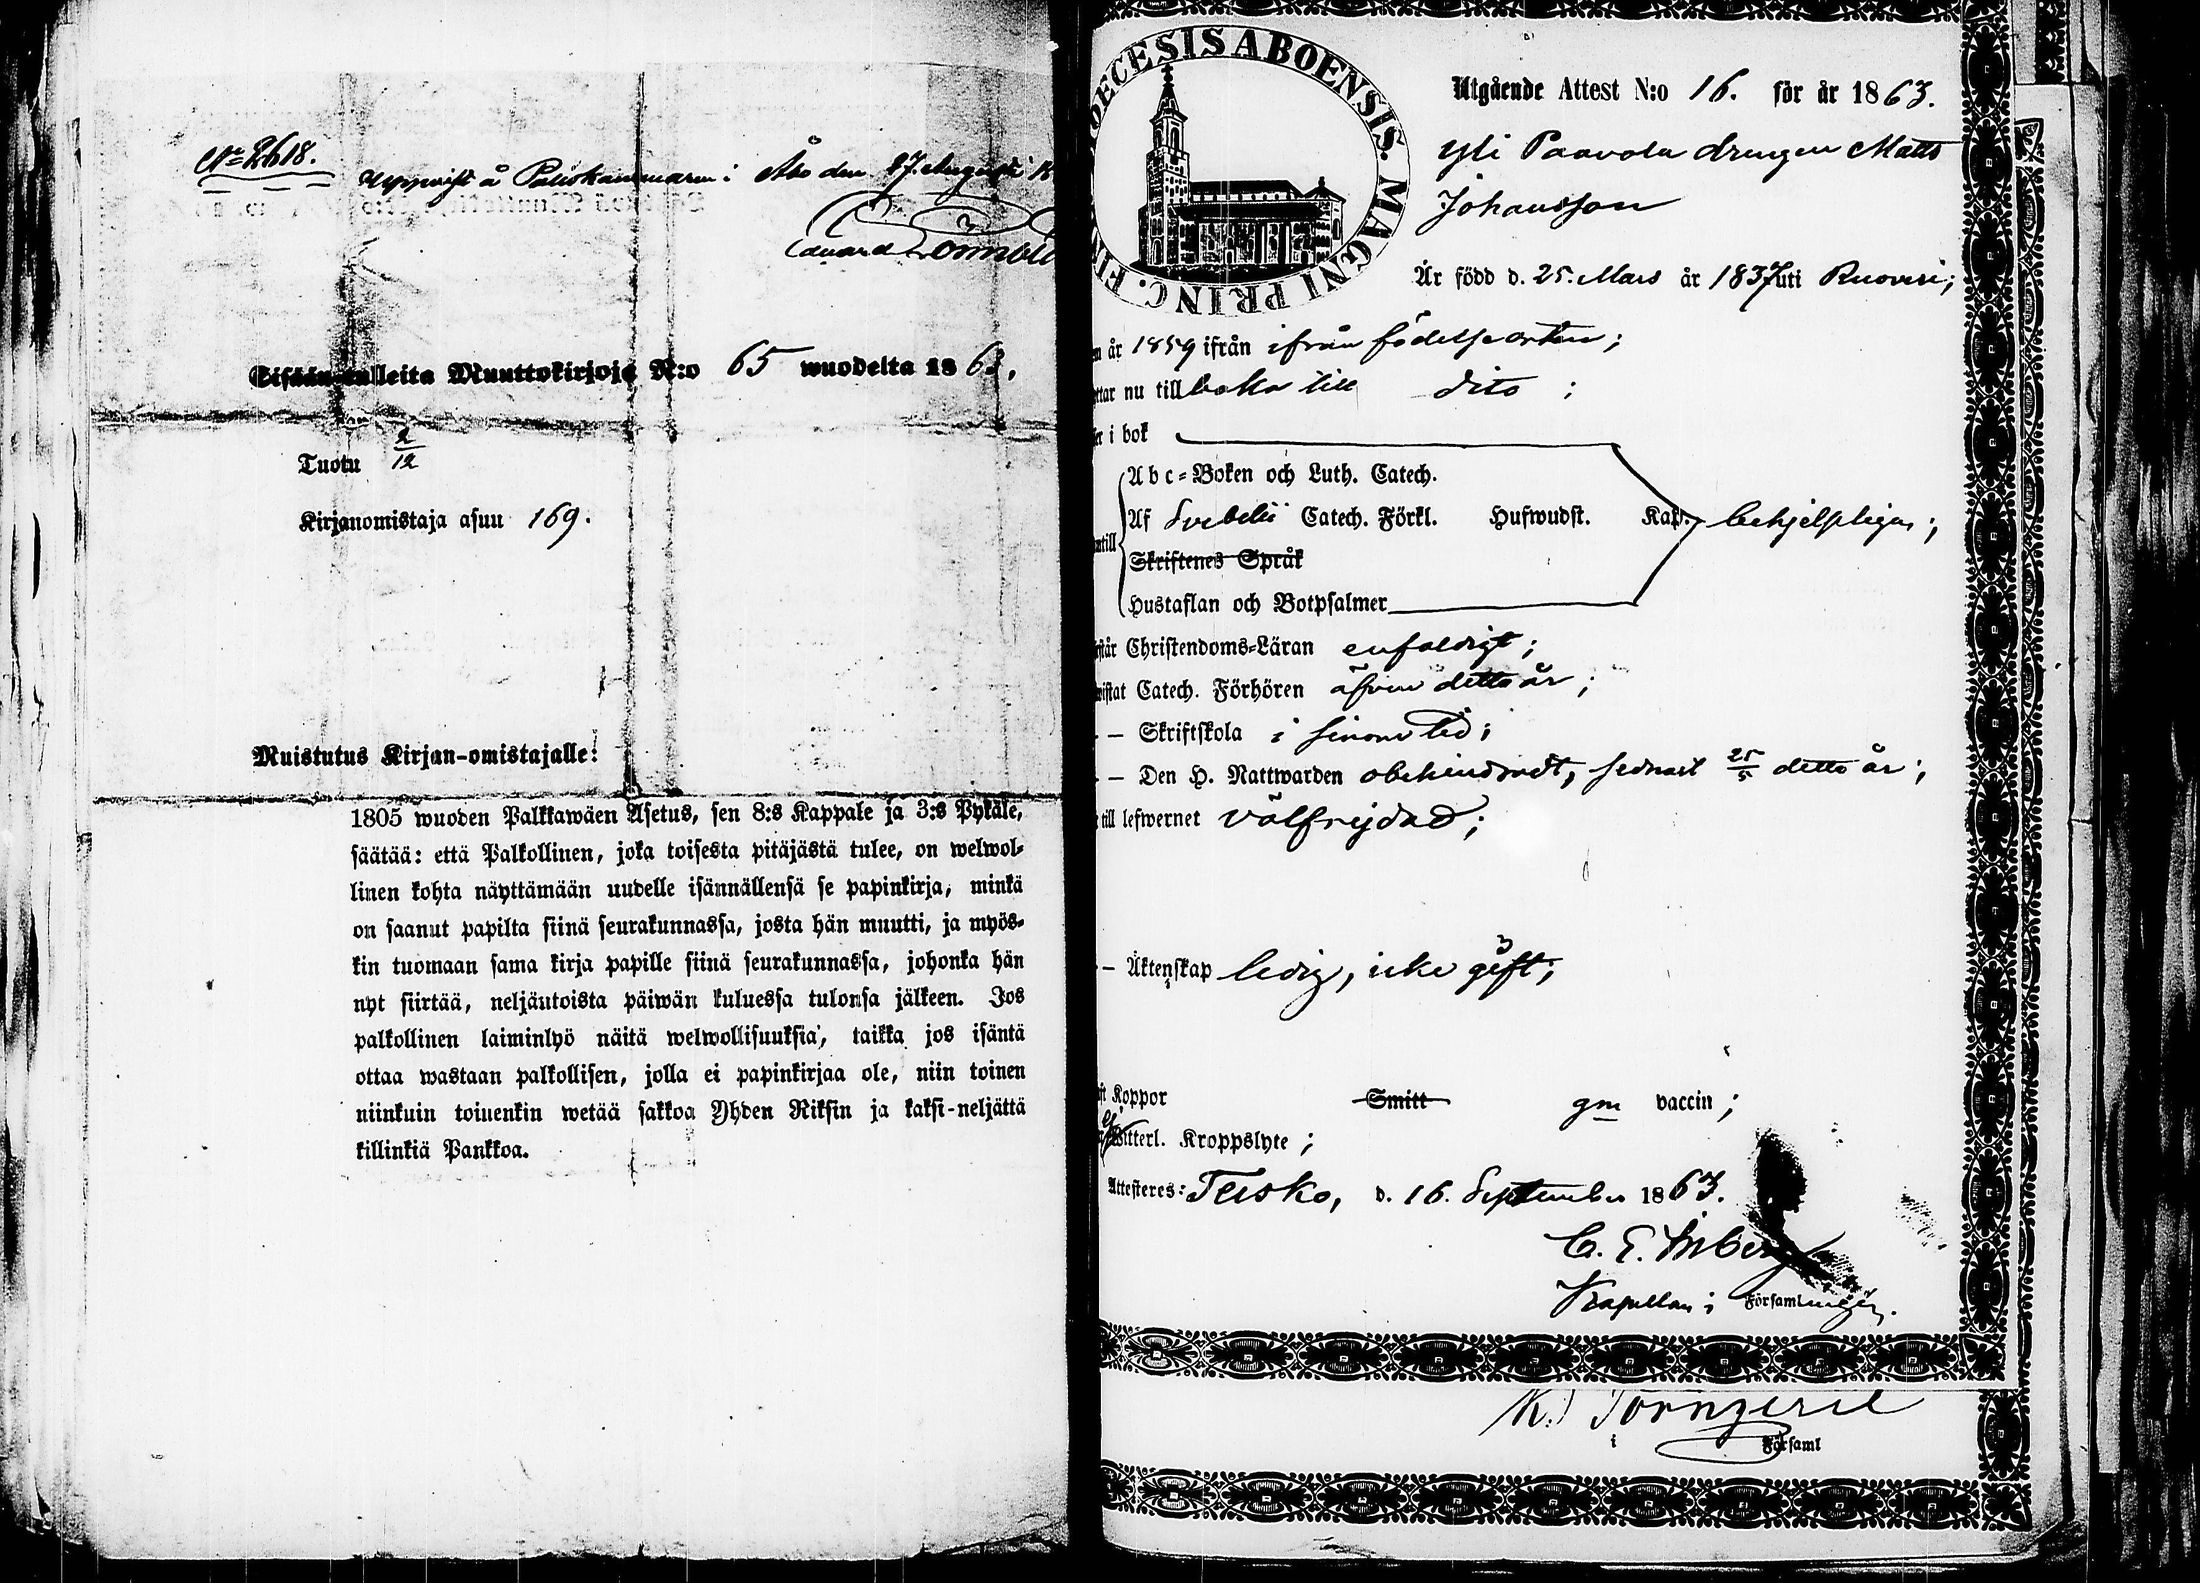 No 2618.
Uppvist å Poliskammaren i Åbo den 27. Augusti
Eduard
Sisään-tulleita Muuttokirjoja N:o 65 wuodelta 1863.
Tuotu 2/12
Kirjanomistaja asuu 169.
Muistutus Kirjan-omistajalle:
1805 wuoden Palkkawäen Asetus, sen 8:s Kappale ja 3:s Pykäle,
säätää: että Palkollinen, joka toisesta pitäjästä tulee, on welwol-
linen kohta näyttämään uudelle isännällensä se papinkirja, minkä
on saanut papilta siinä seurakunnassa, josta hän muutti, ja myös-
kin tuomaan sama kirja papille siinä seurakunnassa, johonka hän
nyt siirtää, neljäntoista päiwän kuluessa tulonsa jälkeen. Jos
palkollinen laiminlyö näitä welwollisuuksia, taikka jos isäntä
ottaa wastaan palkollisen, jolla ei papinkirjaa ole, niin toinen
niinkuin toinenkin wetää sakkoa Yhden Riksin ja kaksi-neljättä
killinkiä Pankkoa.
DIOECESIS ABOENSIS. MAGNI PRINC. FIN
Utgående Attest N:o 16. för år 1863.
Yli Paavola drengen Matts
Johansson
Är född d. 25. Mars år 1837 uti Ruovesi;
år 1859 ifrån ifrån födelseorten;
nu till baka till dito;
i bok
Abc-Boken och Luth. Catech.
Af Svebelii Catech. Förkl. Hufwudst. Kap. behjelpligen;
Skriftenes Språk
Hustaflan och Botpsalmer
Christendoms-Läran enfaldigt;
Catech. Förhören äfven detta år;
— Skriftskola i sinom tid;
— Den H. Nattwarden obehindradt, sednast 25/5 detta år;
till lefwernet välfrejdad;
— Äktenskap ledig, icke gift;
Koppor Smitt gm vaccin;
ej Witterl. Kroppslyte;
Attesteres: Teisko, d. 16. September 1863.
C. E.
Kapellan i Församlingen.
K. J. Törnzerie
i Församl